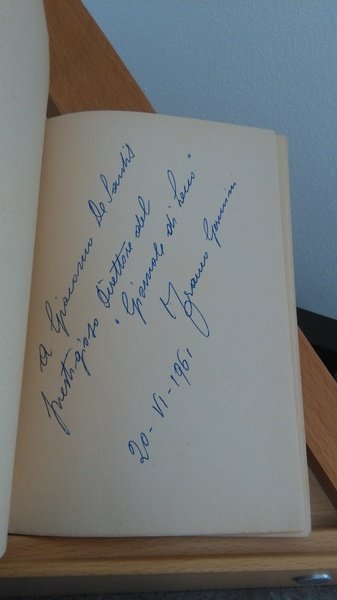 A Giacomo De Santis
prestigioso Direttore del
"Giornale di Lecco"
Franco Gennini
20-VI-1961